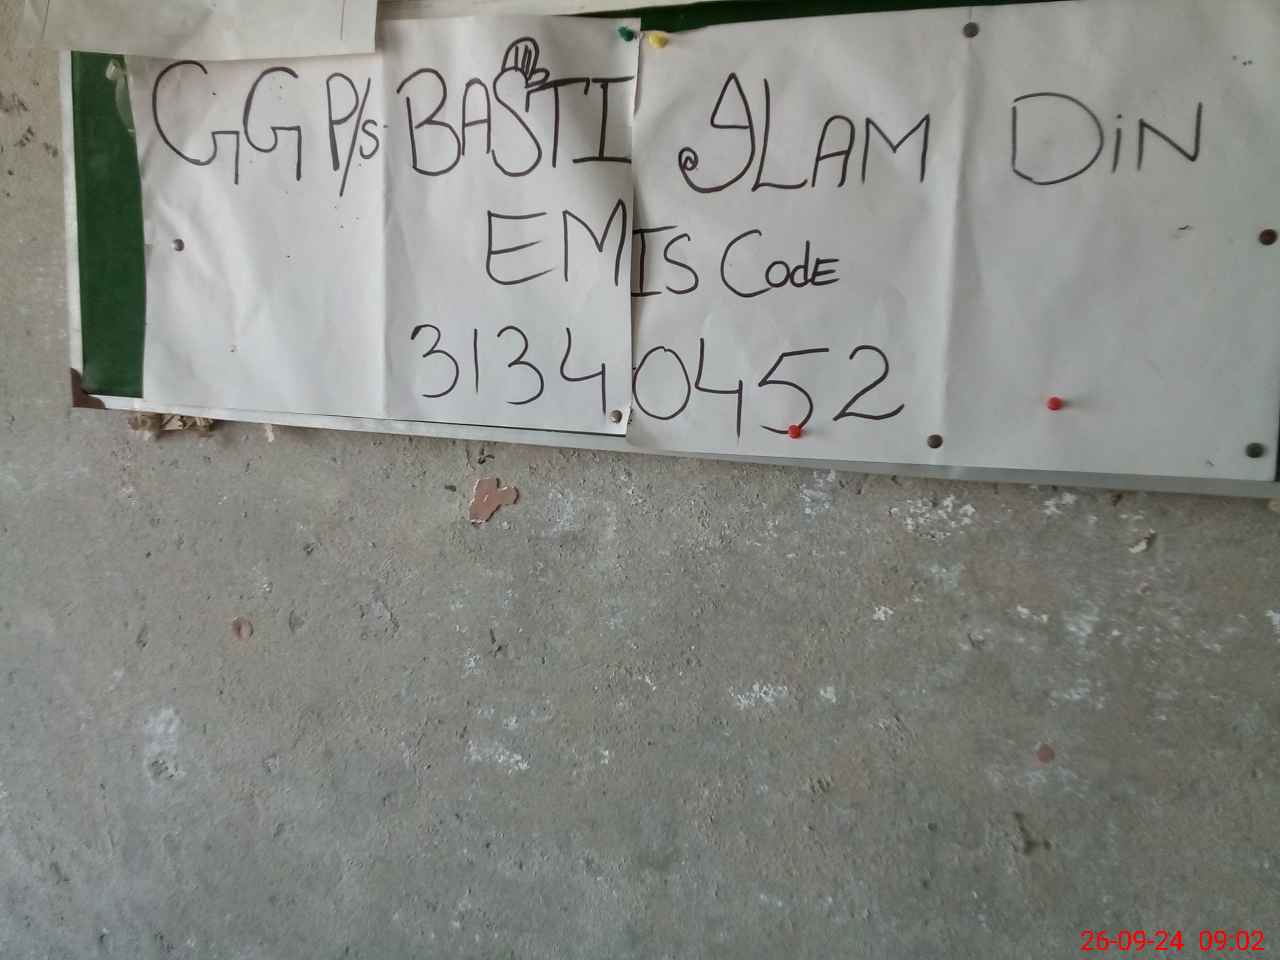 GG P/S BASTI ILAM DiN
EMIS CodE
31340452
26-09-24 09:02